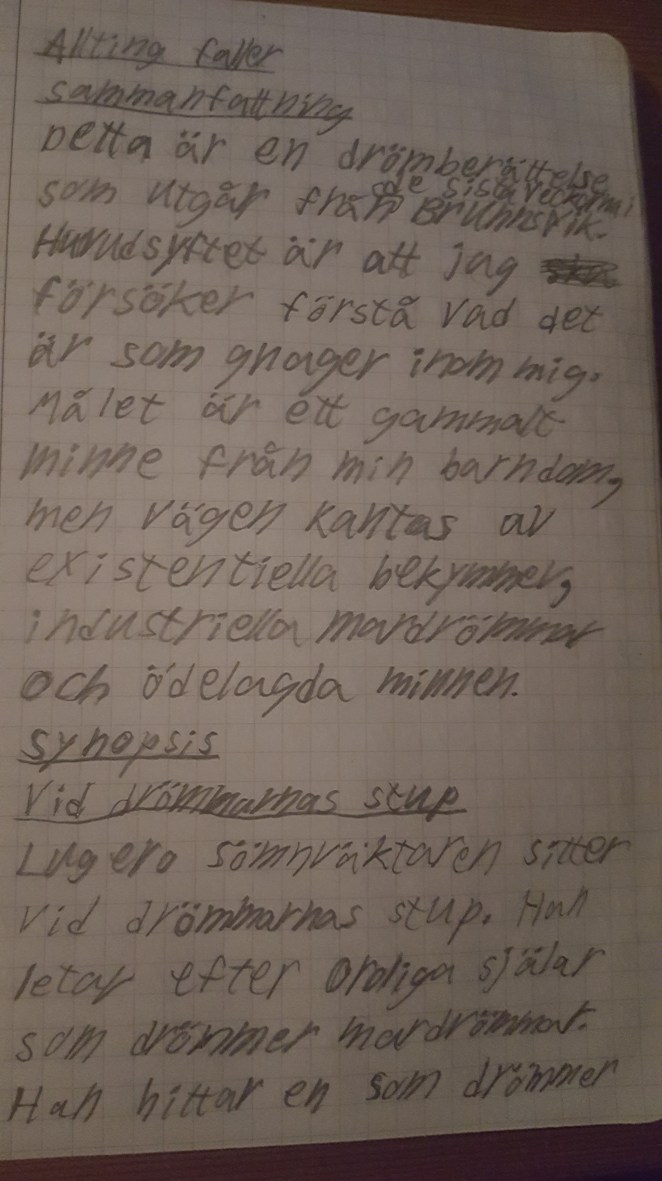 Allting faller
sammanfattning
Detta är en drömberättelse
de sista veckorna i
som utgår från Brunnsvik.
Huvudsyftet är att jag
försöker förstå vad det
är som gnager inom mig.
Målet är ett gammalt
minne från min barndom,
men vägen kantas av
existentiella bekymmer,
industriella mardrömmar
och ödelagda minnen.
Synopsis
Vid drömmarnas stup
Lugero sömnväktaren sitter
vid drömmarnas stup. Han
letar efter oroliga själar
som drömmer mardrömmar.
Han hittar en som drömmer